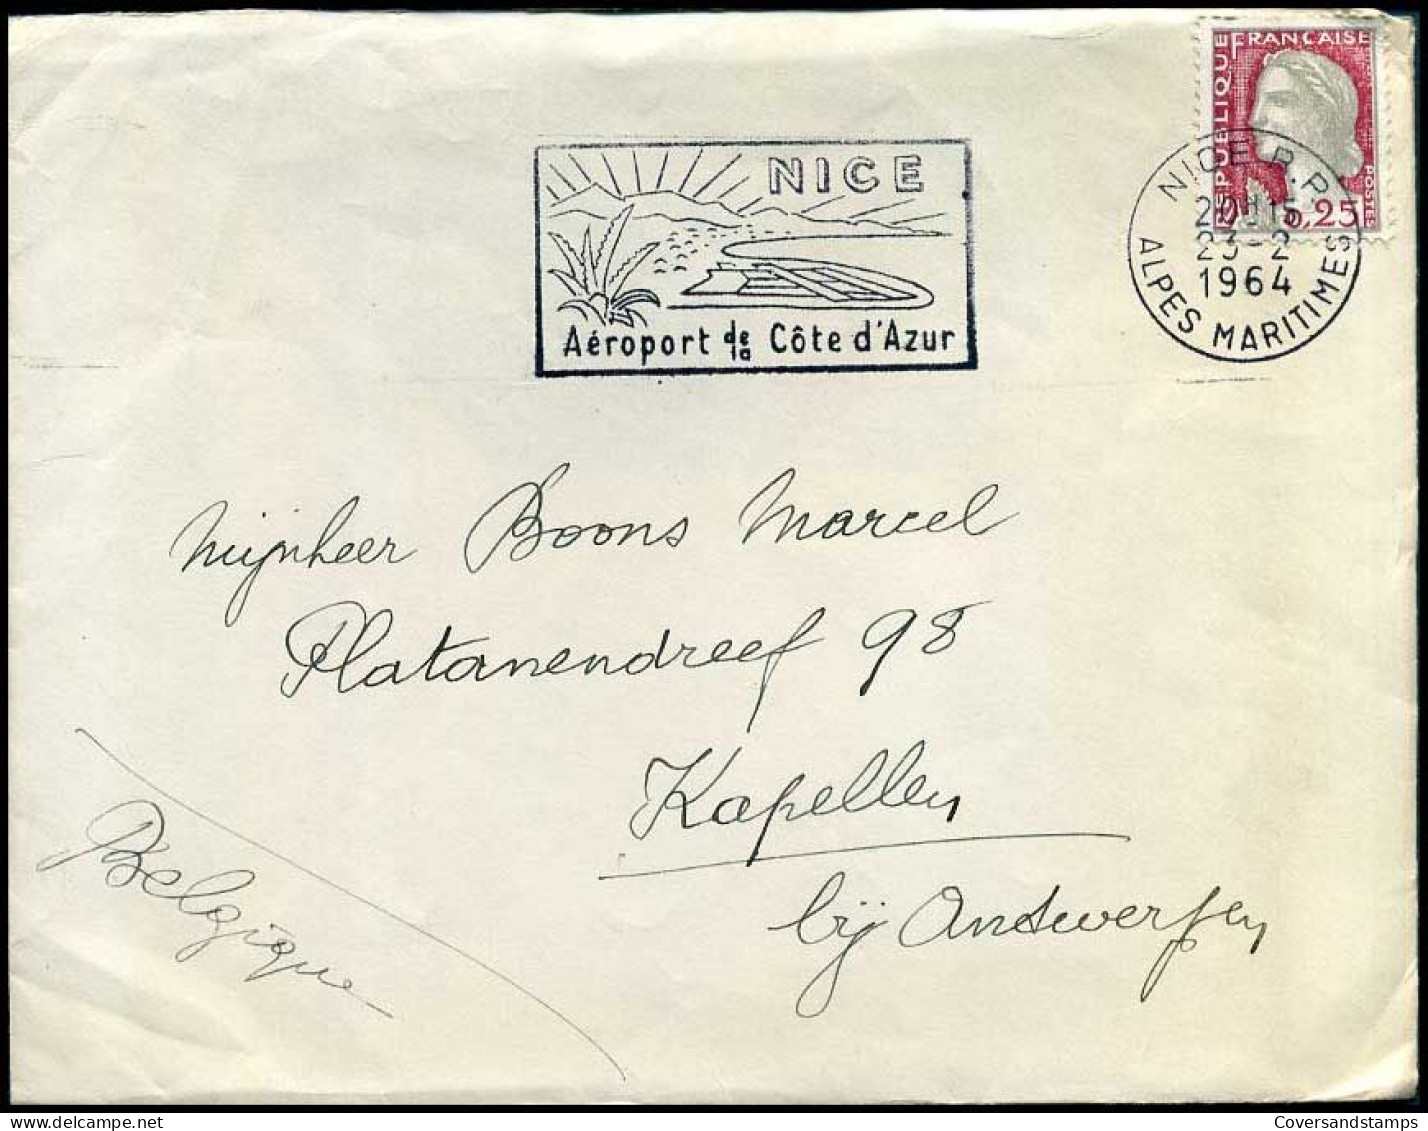 RÉPUBLIQUE FRANÇAISE
POSTES
0,25
NICE R.P.
23-2
1964
ALPES MARITIMES
NICE
Aéroport de la Côte d'Azur
Mijnheer Boons Marcel
Platanendreef 98
Kapellen
bij Antwerpen
Belgique
Coversandstamps